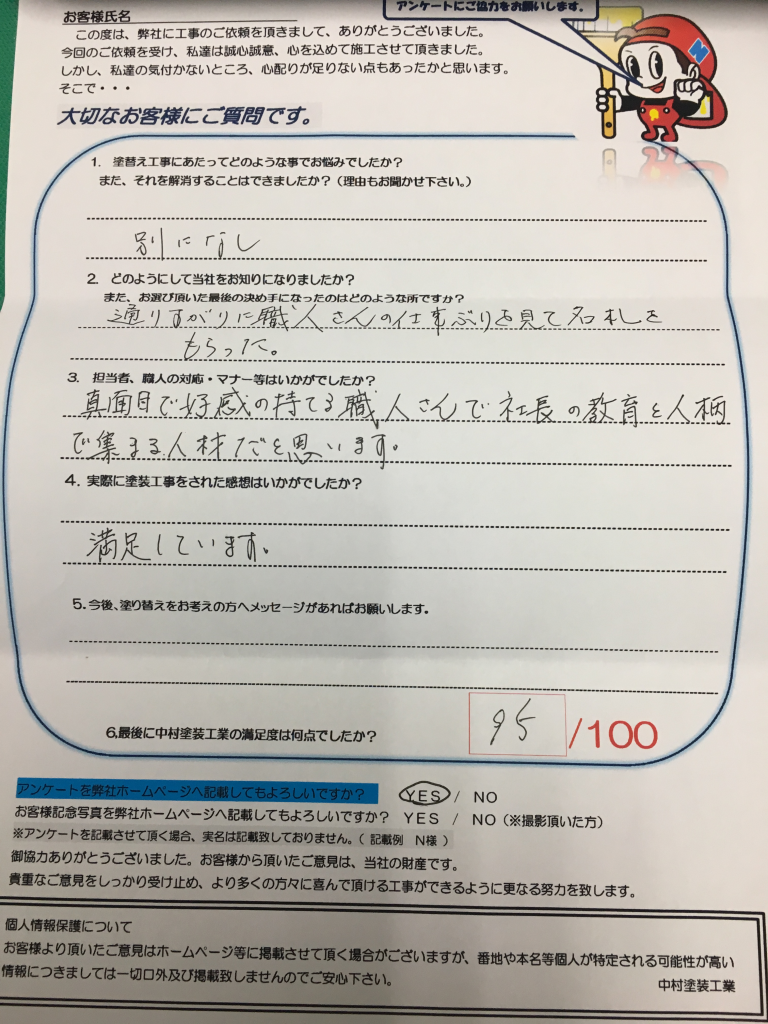 アンケートにご協力をお願いします。
お客様氏名
この度は、弊社に工事のご依頼を頂きまして、ありがとうございました。
今回のご依頼を受け、私達は誠心誠意、心を込めて施工させて頂きました。
しかし、私達の気付かないところ、心配りが足りない点もあったかと思います。
そこで・・・
N
大切なお客様にご質問です。
1. 塗替え工事にあたってどのような事でお悩みでしたか?
また、それを解消することはできましたか?(理由もお聞かせ下さい。)
別になし
2. どのようにして当社をお知りになりましたか?
また、お選び頂いた最後の決め手になったのはどのような所ですか?
通りすがりに職人さんの仕事ぶりを見て名札を
もらった。
3. 担当者、職人の対応・マナー等はいかがでしたか?
真面目で好感の持てる職人さんで社長の教育と人柄
で集まる人材だと思います。
4. 実際に塗装工事をされた感想はいかがでしたか?
満足しています。
5.今後、塗り替えをお考えの方へメッセージがあればお願いします。
6.最後に中村塗装工業の満足度は何点でしたか? 95 /100
アンケートを弊社ホームページへ記載してもよろしいですか? YES / NO
お客様記念写真を弊社ホームページへ記載してもよろしいですか? YES / NO(※撮影頂いた方)
※アンケートを記載させて頂く場合、実名は記載致しておりません。( 記載例 N様 )
御協力ありがとうございました。お客様から頂いたご意見は、当社の財産です。
貴重なご意見をしっかり受け止め、より多くの方々に喜んで頂ける工事ができるように更なる努力を致します。
個人情報保護について
お客様より頂いたご意見はホームページ等に掲載させて頂く場合がございますが、番地や本名等個人が特定される可能性が高い
情報につきましては一切口外及び掲載致しませんのでご安心下さい。
中村塗装工業